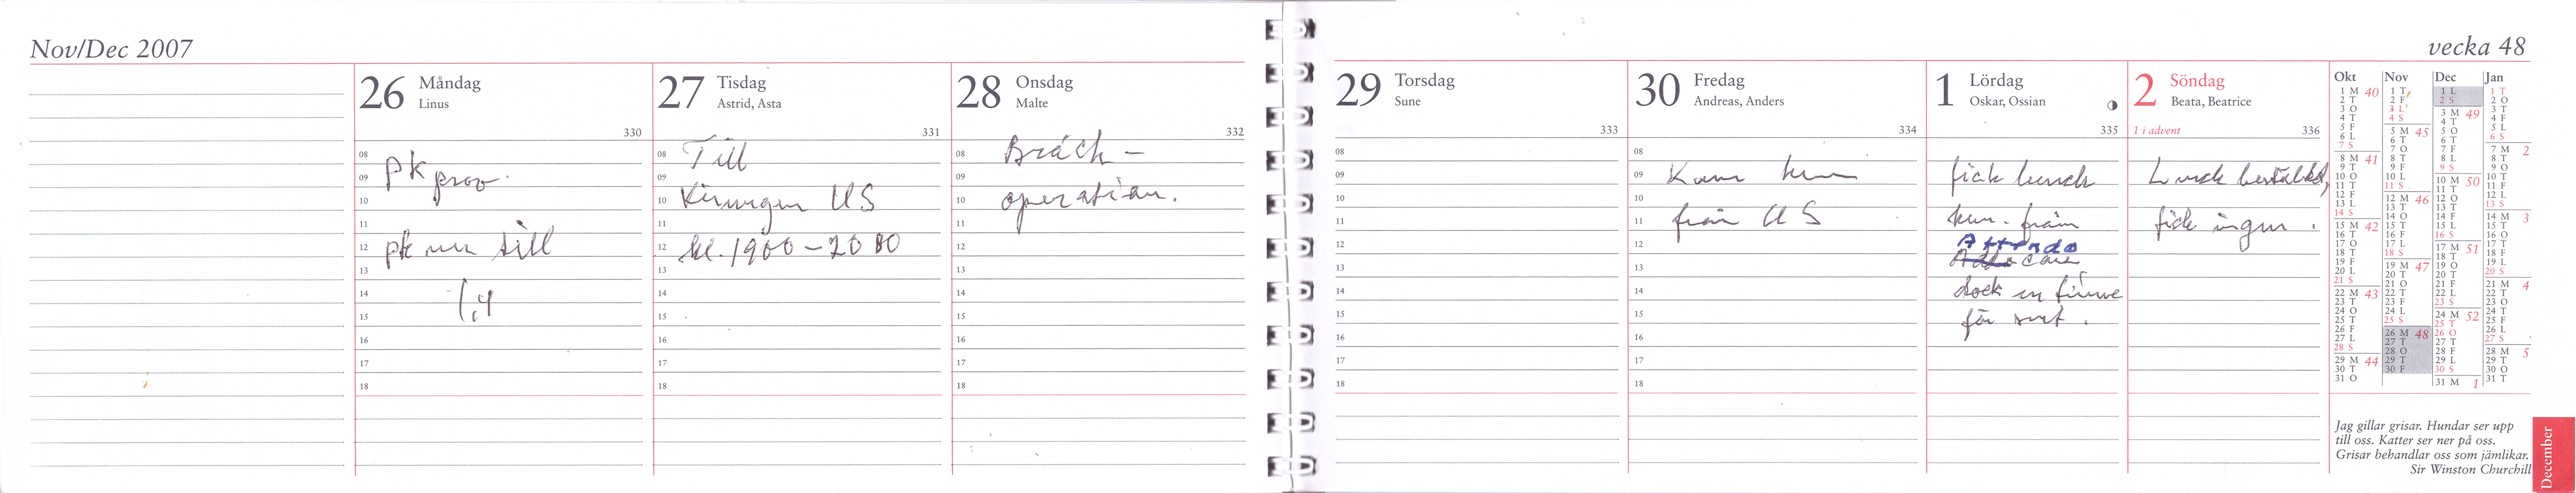 Nov/Dec 2007
26 Måndag
Linus
330
08
pk prov.
09
10
11
12
pk ner till
13
14
1,4
15
16
17
18
27 Tisdag
Astrid, Asta
331
08
Till
09
10
Kirurgen US
11
12
kl. 1900-2000
13
14
15
16
17
18
28 Onsdag
Malte
332
08
Bråck-
09
10
operation.
11
12
13
14
15
16
17
18
29 Torsdag
Sune
333
08
09
10
11
12
13
14
15
16
17
18
30 Fredag
Andreas, Anders
334
08
09
Kom hem
10
11
från US
12
13
14
15
16
17
18
1 Lördag
Oskar, Ossian
335
fick lunch
hem. från
Attendo
dock en timme
för sent.
2 Söndag
Beata, Beatrice
1 i advent
336
Lunch beställd,
fick ingen.
vecka 48
Okt
1 M 40
2 T
3 O
4 T
5 F
6 L
7 S
8 M 41
9 T
10 O
11 T
12 F
13 L
14 S
15 M 42
16 T
17 O
18 T
19 F
20 L
21 S
22 M 43
23 T
24 O
25 T
26 F
27 L
28 S
29 M 44
30 T
31 O
Nov
1 T
2 F
3 L
4 S
5 M 45
6 T
7 O
8 T
9 F
10 L
11 S
12 M 46
13 T
14 O
15 T
16 F
17 L
18 S
19 M 47
20 T
21 O
22 T
23 F
24 L
25 S
26 M 48
27 T
28 O
29 T
30 F
Dec
1 L
2 S
3 M 49
4 T
5 O
6 T
7 F
8 L
9 S
10 M 50
11 T
12 O
13 T
14 F
15 L
16 S
17 M 51
18 T
19 O
20 T
21 F
22 L
23 S
24 M 52
25 T
26 O
27 T
28 F
29 L
30 S
31 M 1
Jan
1 T
2 O
3 T
4 F
5 L
6 S
7 M 2
8 T
9 O
10 T
11 F
12 L
13 S
14 M 3
15 T
16 O
17 T
18 F
19 L
20 S
21 M 4
22 T
23 O
24 T
25 F
26 L
27 S
28 M 5
29 T
30 O
31 T
Jag gillar grisar. Hundar ser upp
till oss. Katter ser ner på oss.
Grisar behandlar oss som jämlikar.
Sir Winston Churchill
December